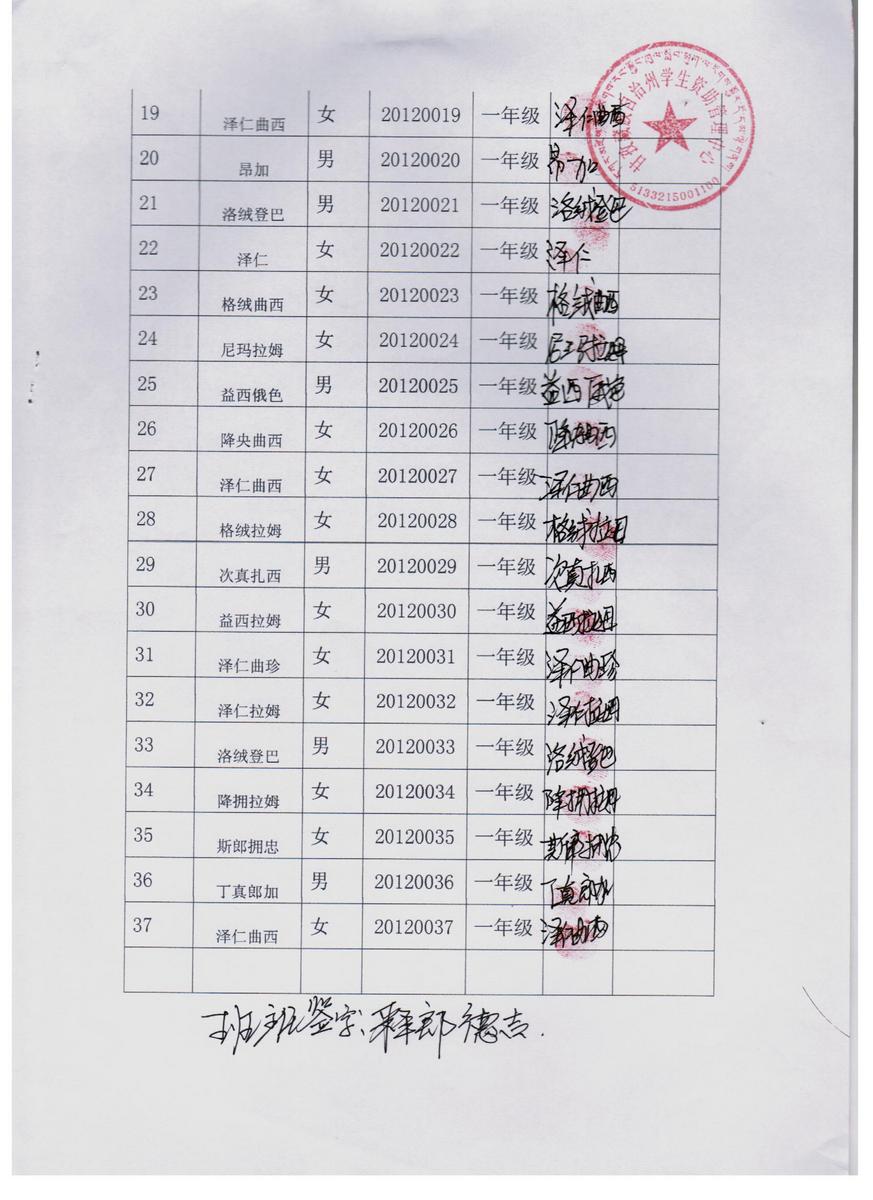 甘孜藏族自治州学生资助管理中心
5133215001100
19 泽仁曲西 女 20120019 一年级 泽仁曲西
20 昂加 男 20120020 一年级 昂加
21 洛绒登巴 男 20120021 一年级 洛绒登巴
22 泽仁 女 20120022 一年级 泽仁
23 格绒曲西 女 20120023 一年级 格绒曲西
24 尼玛拉姆 女 20120024 一年级 尼玛拉姆
25 益西俄色 男 20120025 一年级 益西俄色
26 降央曲西 女 20120026 一年级 降央曲西
27 泽仁曲西 女 20120027 一年级 泽仁曲西
28 格绒拉姆 女 20120028 一年级 格绒拉姆
29 次真扎西 男 20120029 一年级 次真扎西
30 益西拉姆 女 20120030 一年级 益西拉姆
31 泽仁曲珍 女 20120031 一年级 泽仁曲珍
32 泽仁拉姆 女 20120032 一年级 泽仁拉姆
33 洛绒登巴 男 20120033 一年级 洛绒登巴
34 降拥拉姆 女 20120034 一年级 降拥拉姆
35 斯郎拥忠 女 20120035 一年级 斯郎拥忠
36 丁真郎加 男 20120036 一年级 丁真郎加
37 泽仁曲西 女 20120037 一年级 泽仁曲西
班主任签字:泽郎德吉.